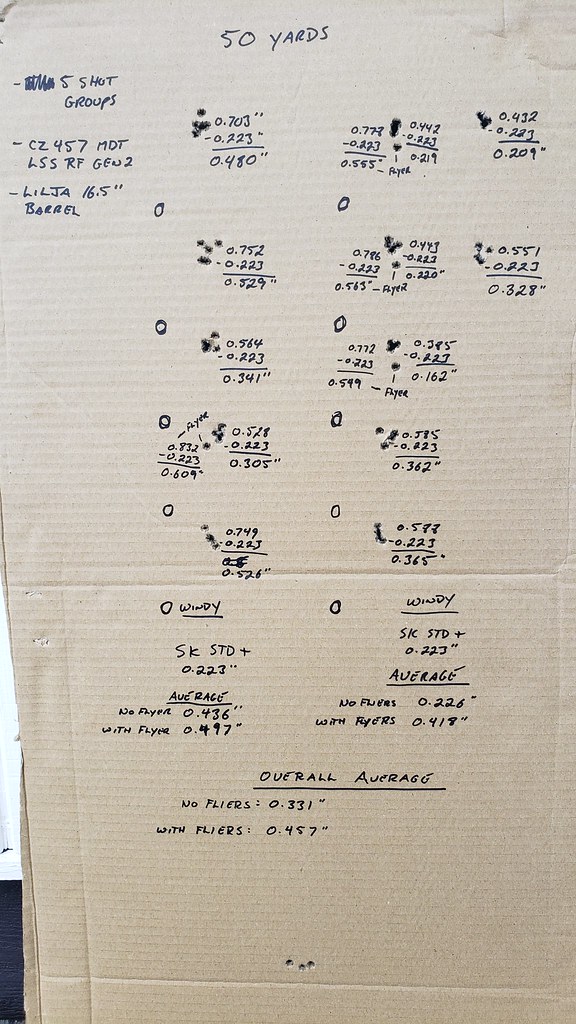 50 YARDS
- 5 SHOT
GROUPS
- CZ 457 MDT
LSS RF GEN2
- LILJA 16.5"
BARREL
0.703"
-0.223"
0.480"
0.773
-0.223
0.555"
- FLYER
0.442
-0.223
0.219
0.432
-0.223
0.209"
0.752
-0.223
0.529"
0.786
-0.223
0.563"
- FLYER
0.443
-0.223
0.220"
0.551
-0.223
0.328"
0.564
-0.223
0.341"
0.772
-0.223
0.549
- FLYER
0.385
-0.223
0.162"
FLYER
0.832
-0.223
0.609"
0.528
-0.223
0.305"
0.585
-0.223
0.362"
0.749
-0.223
0.526"
0.588
-0.223
0.365"
WINDY
SK STD +
0.223"
AVERAGE
NO FLYER 0.436"
WITH FLYER 0.497"
WINDY
SK STD +
0.223"
AVERAGE
NO FLIERS 0.226"
WITH FLYERS 0.418"
OVERALL AVERAGE
NO FLIERS: 0.331"
WITH FLIERS: 0.457"